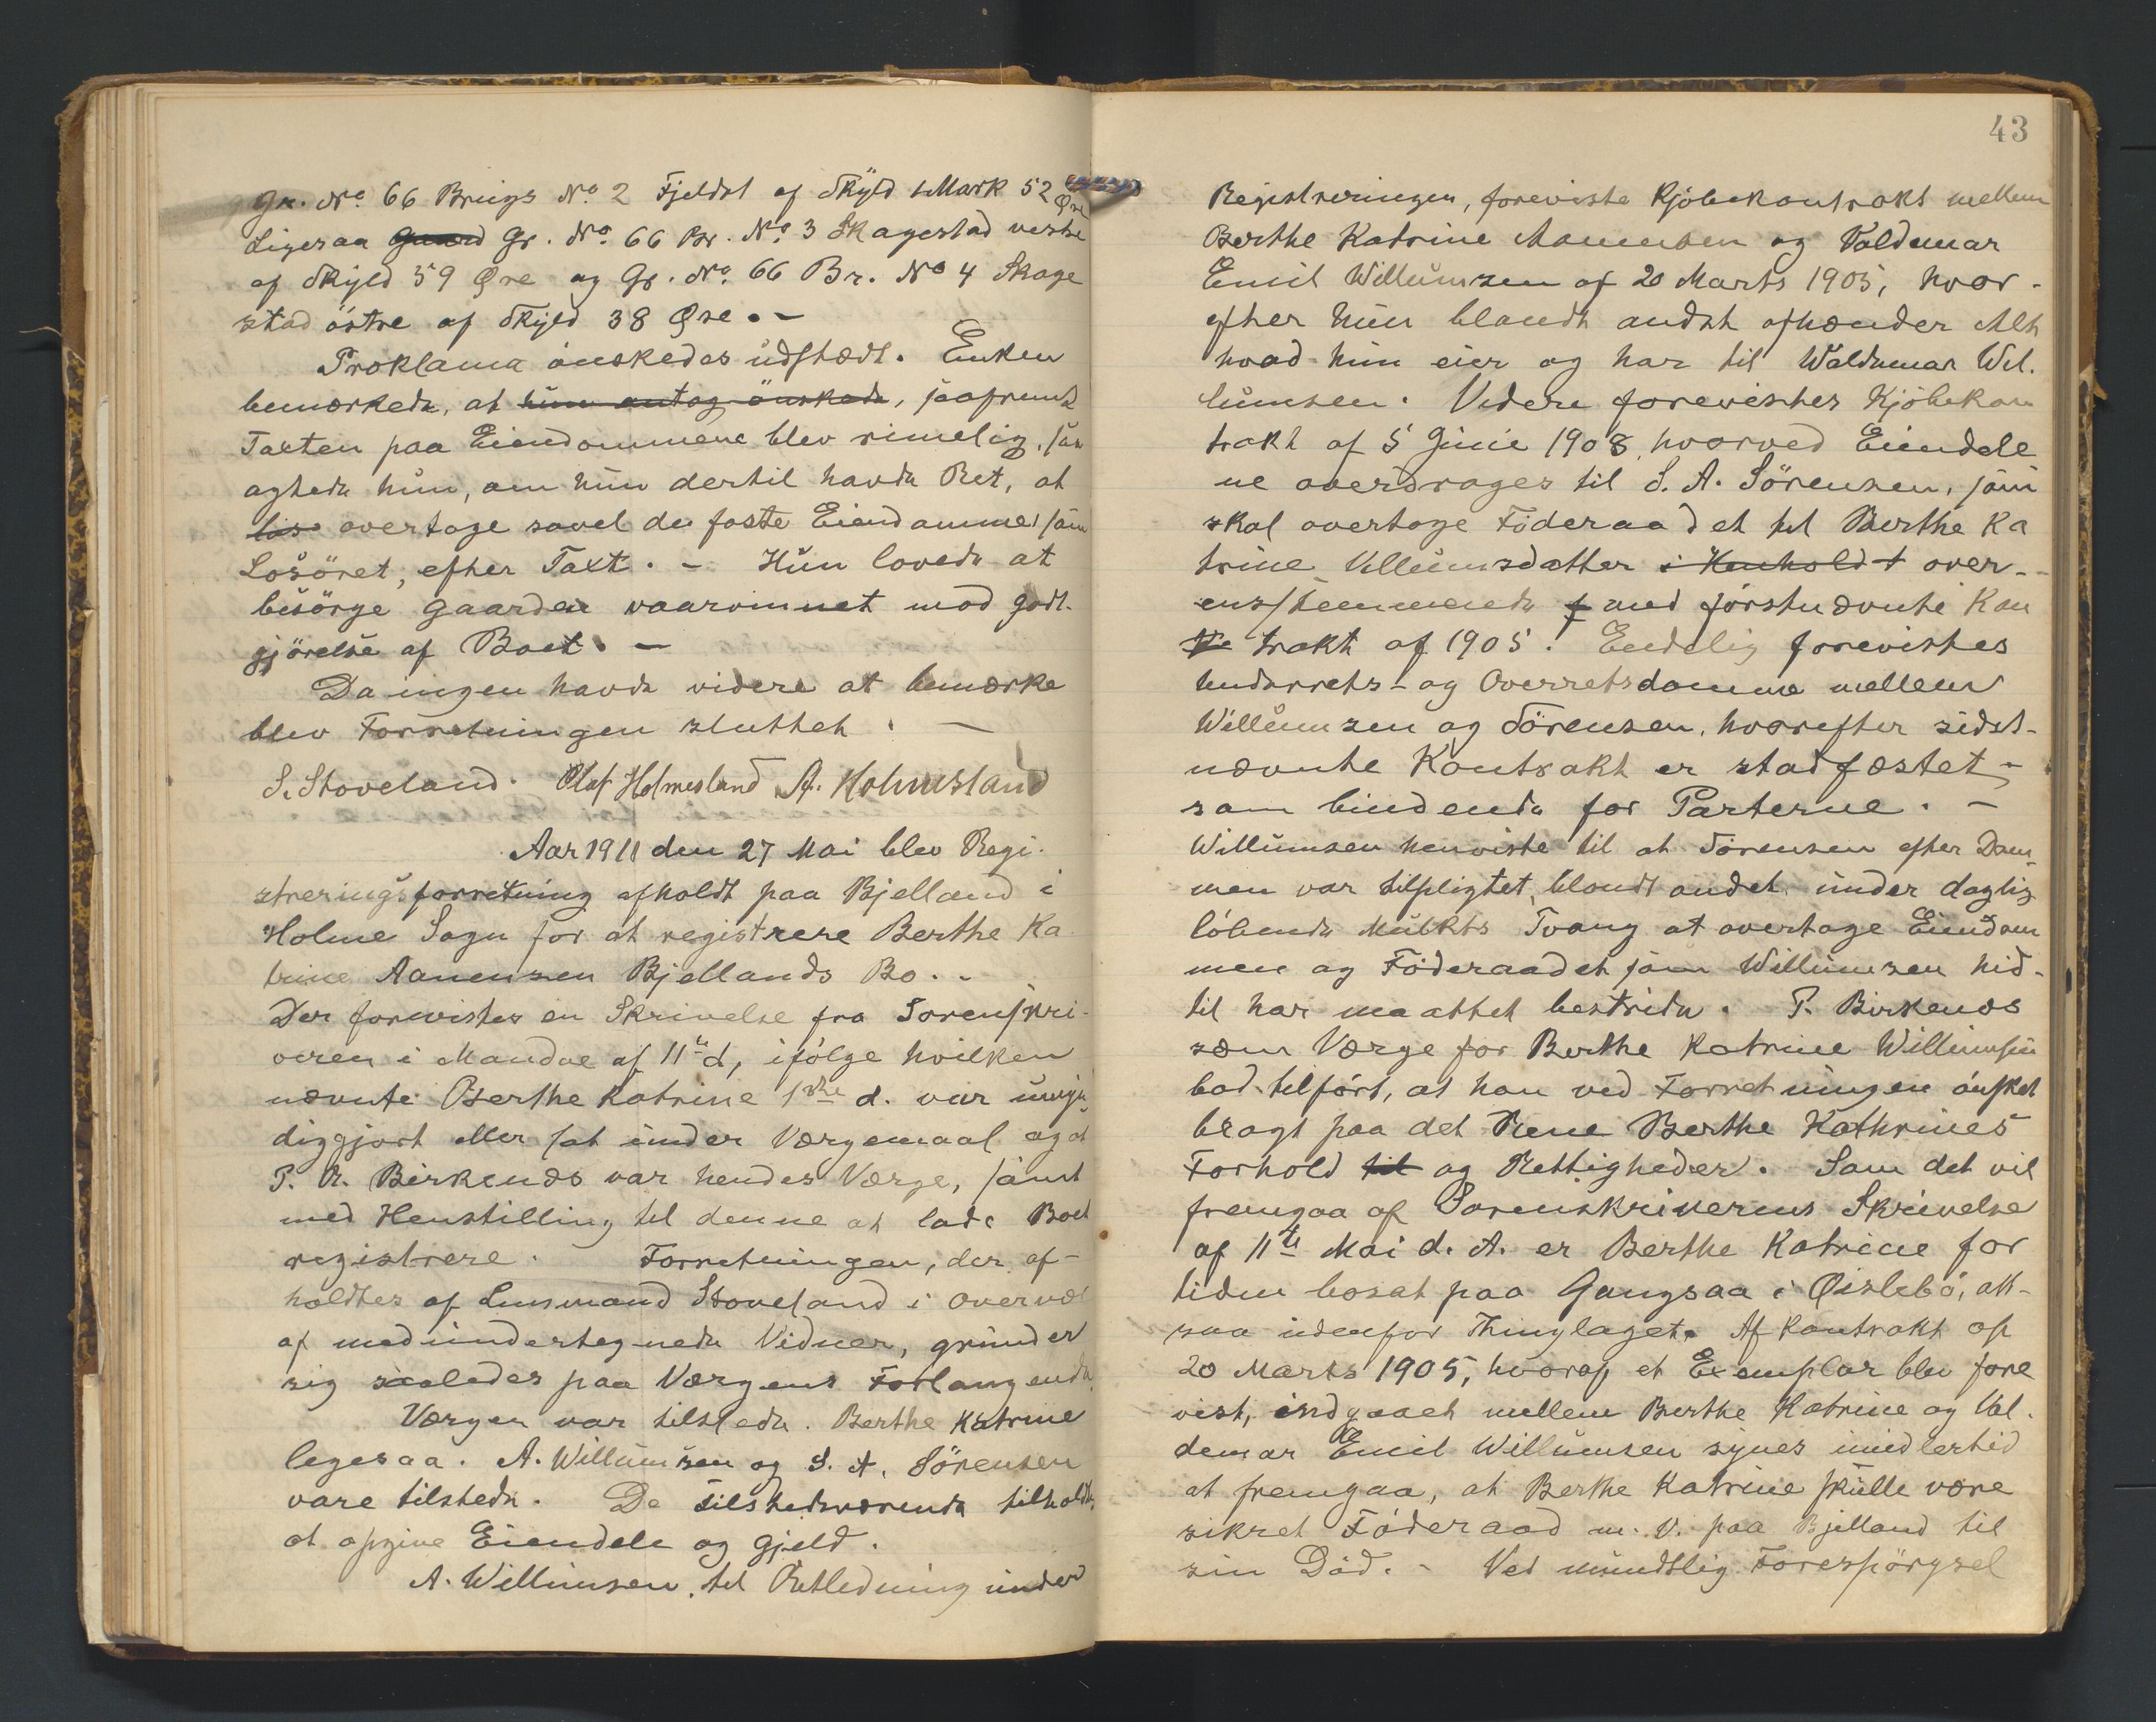 Gr. No. 66 Brugs No. 2 Fjeldst af Skyld 1 Mark 52 Øre
Ligesaa Gaard Gr. No. 66 Br. No. 3 Skagestad vestre
af Skyld 59 Øre og Gr. No. 66 Br. No 4 Skage
stad östre af Skyld 38 Øre. -
Proklama önskedes udstædt. Enken
bemærkede, at hun antog önskede, saafremt
Taxten paa Eiendommene blev rimelig, saa
agtede hun, om hun dertil havde Ret, at
lös overtage savel de faste Eiendomme som
Losöret, efter Taxt. - Hun lovede at
besörge Gaarden vaaronnet mod godt-
gjörelse af Boet. -
Da ingen havde videre at bemærke
blev Forretningen sluttet. -
S. Stoveland. Olaf Holmesland A. Holmesland
Aar 1911 den 27 Mai blev Regi-
streringsforretning afholdt paa Bjelland i
Holme Sogn for at registrere Berthe Ka
trine Aanensen Bjellands Bo. -
Der forevistes en Skrivelse fra Sorenskri-
veren i Mandal af 11te d, ifölge hvilken
nævnte Berthe Katrine 1ste d. var umyn
diggjort eller sat under Værgemaal og at
P. A. Birkenæs var hendes Værge, samt
med Henstilling til denne at lade Boet
registrere. Forretningen, der af-
holdtes af Lensmand Stoveland i Overvær
af medundertegnede Vidner, grunder
sig saaledes paa Værgens Forlangende
Værgen var tilstede. Berthe Katrine
legesaa. A. Willumsen og S. A. Sörensen
vare tilstede. De tilstedeværende tilholdtes
at opgive Eiendele og Gjeld.
A. Willumsen, til Retledning under
43
Registreringen, foreviste Kjöbekontrakt mellem
Berthe Katrine Aanensen og Valdemar
Emil Willumsen af 20 Marts 1905, hvor-
efter hun blandt andet afhænder Alt
hvad hun eier og har til Waldemar Wil-
lumsen. Videre forevistes Kjöbekon
trakt af 5 Junie 1908, hvorved Eiendele
ne overdrages til S. A. Sörensen, som
skal overtage Föderaadet til Berthe Ka
trine Villumsdatter i Henholdt over-
ensstemmende f med förstnævnte Kon
trakt af 1905. Endelig forevistes
Underrets- og Overretsdomme mellem
Willumsen og Sörensen, hvorefter sidst-
nævnte Kontrakt er stadfæstet -
som bindende for Parterne. -
Willumsen henviste til at Sörensen efter Dom-
men var tilpligtet, blandt andet under daglig
löbende Mulkts Tvang at overtage Eiendom
men og Föderaadet som Willumsen hid-
til har maattet bestride. P. Birkenæs
som Værge for Berthe Katrine Willumsen
bad tilfört, at han ved Forretningen önsket
bragt paa det Rene Berthe Kathrines
Forhold til og Rettigheder. Som det vil
fremgaa af Sorenskriverens Skrivelse
af 11te Mai d. A. er Berthe Katrine for
tiden bosat paa Gangsaa i Øislebö, alt-
saa udenfor Thinglaget. Af Kontrakt af
20 Marts 1905, hvoraf et Exemplar blev fore
vist, indgaaet mellem Berthe Katrine og Val-
demar Emil Willumsen synes imidlertid
at fremgaa, at Berthe Katrine skulle være
sikret Föderaad m. v. paa Bjelland til
sin Död. - Ved mundtlig Forespörgsel